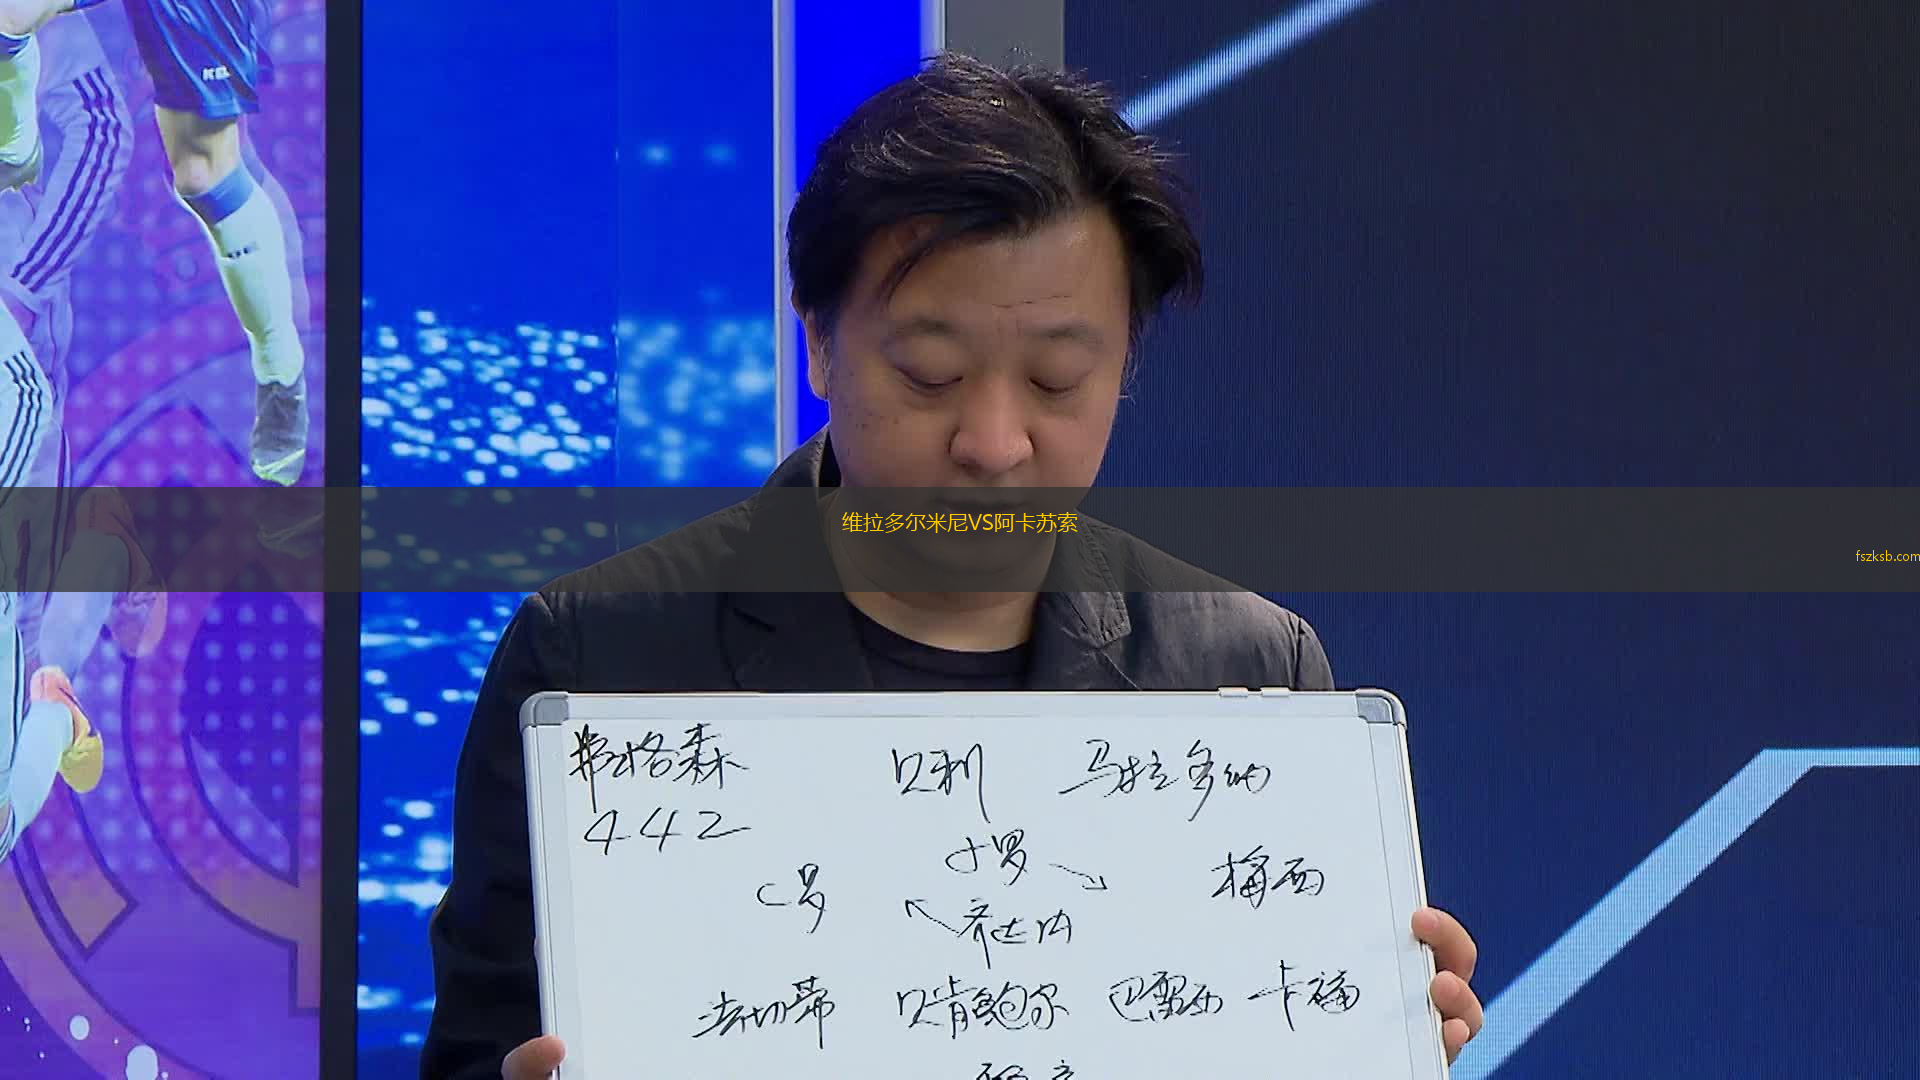 维拉多尔米尼VS阿卡苏索
fszksb.com
弗格森 贝利 马拉多纳
442
小罗
C罗 梅西
齐达内
法切蒂 贝肯鲍尔 巴雷西 卡福